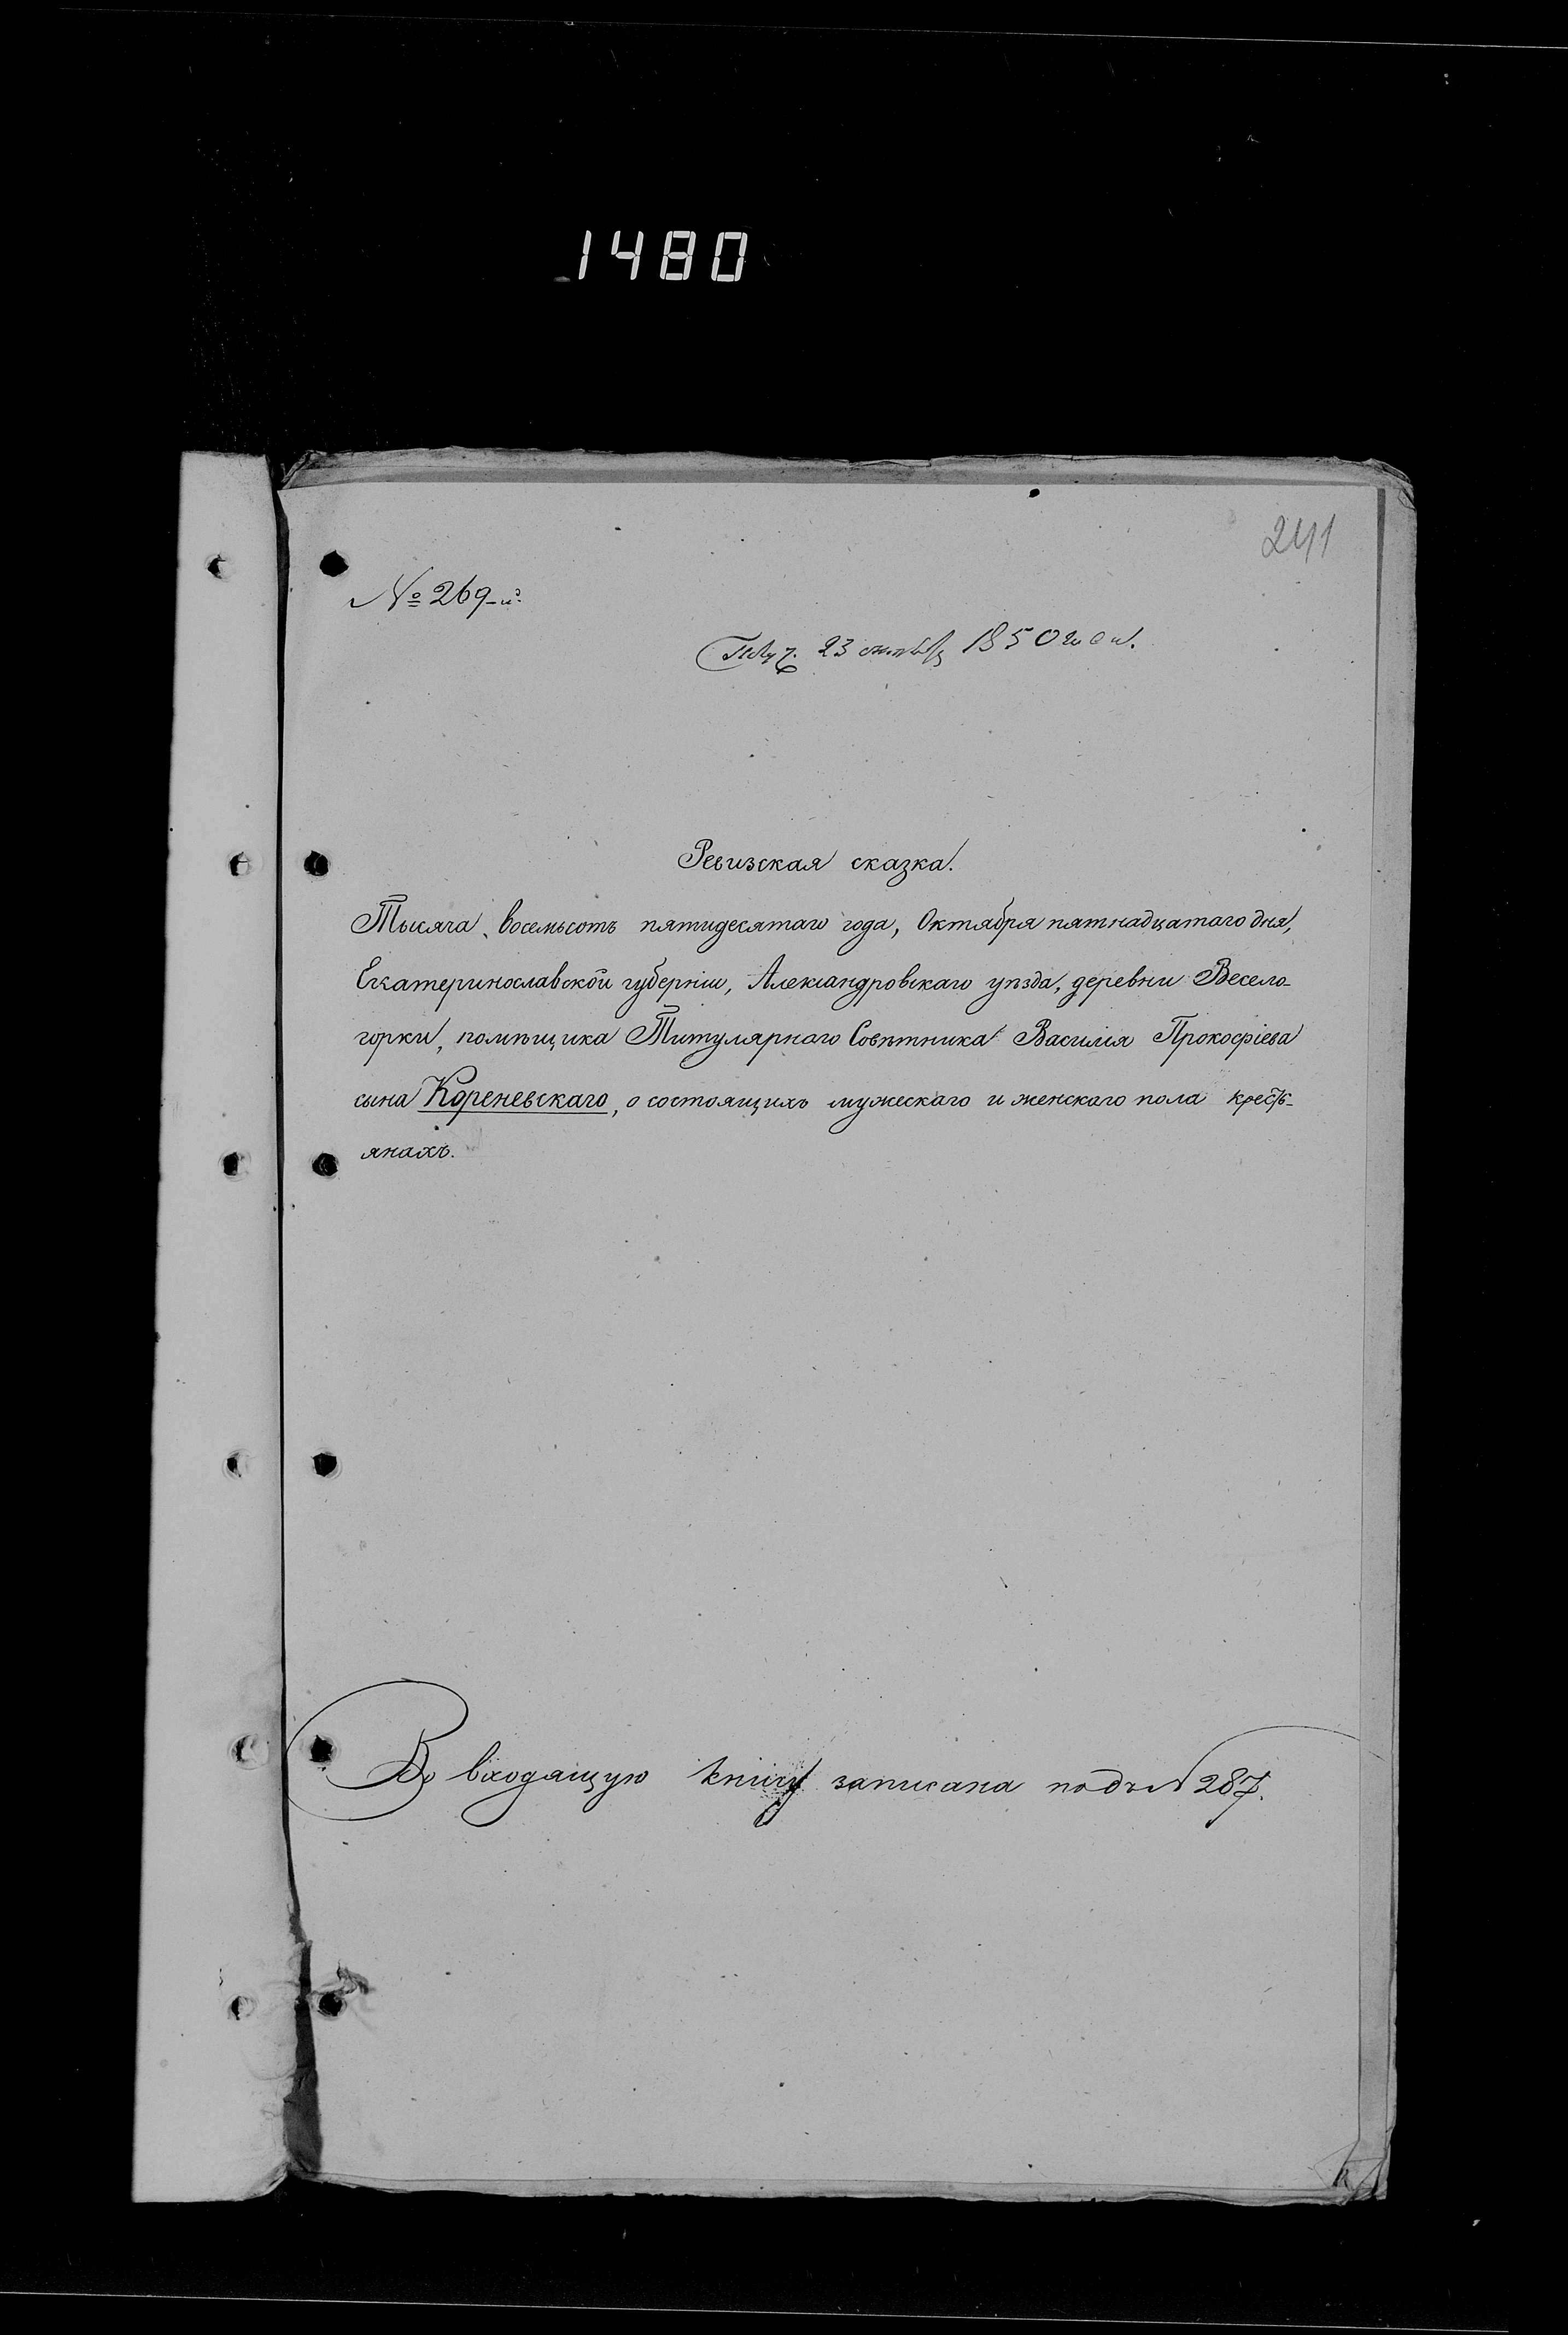 1480
241
№ 269-й.
Получ. 23 октября 1850 года.
Ревизская сказка.
Тысяча восемьсотъ пятидесятаго года, Октября пятнадцатаго дня,
Екатеринославской губерніи, Александровскаго уѣзда, деревни Весело-
горки, помѣщика Титулярнаго Совѣтника Василія Прокофіева
сына Кореневскаго, о состоящихъ мужескаго и женскаго пола кресть-
янахъ.
Во входящую книгу записана подъ № 287.